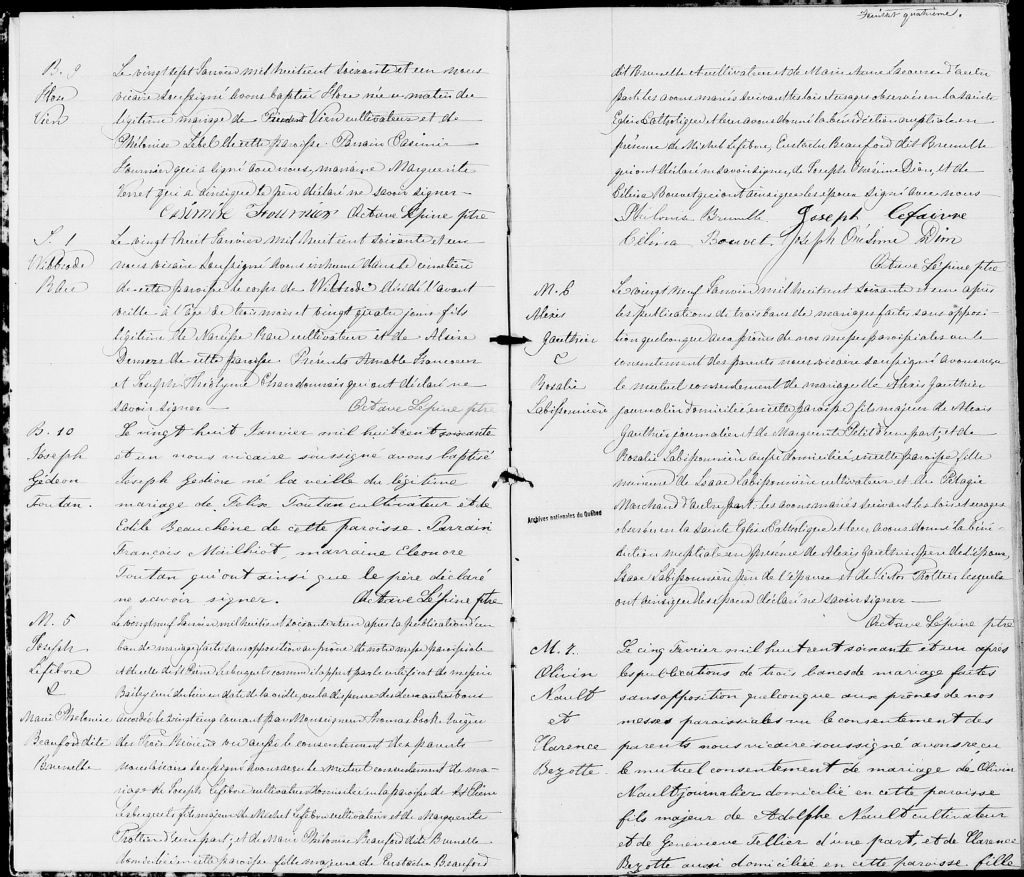 B. 9
Flore
Vien
Le vingt sept Janvier mil huitcent soixante et un nous
vicaire soussigné avons baptisé Flore née ce matin du
légitime mariage de Vien cultivateur et de
Philonise Lebel de cette paroisse Parrain Casimir
Fournier qui a signé avec nous, marraine Marguerite
Verret qui a ainsi que le père déclaré ne savoir signer—
Casimir Fournier Octave Lépine ptre
S. 1
Le vingt huit Janvier mil huitcent soixante et un
nous vicaire soussigné avons inhumé dans le cimetière
de cette paroisse le corps de décédé l'avant
veille à l'âge de trois mois et vingt quatre jours fils
légitime de Narcisse cultivateur et de
de cette paroisse. Présents Amable
et Joseph Chandonnais qui ont déclaré ne
savoir signer— Octave Lépine ptre
B. 10
Joseph
Gédeon
Toutan.
Le vingt huit Janvier mil huit cent soixante
et un nous vicaire soussigné avons baptisé
Joseph Gédion né la veille du légitime
mariage de Felix Toutan cultivateur et de
Edile Beauchêne de cette paroisse. Parrain
François Mailhiot marraine Eleonore
Toutan qui ont ainsi que le père déclaré
ne savoir signer. Octave Lépine ptre
M. 5
Joseph
Lefebvre
&
Marie Philonise
Beaufort dite
Brunelle
Le vingt neuf Janvier mil huitcent soixante et un après la publication d'un
ban de mariage faite sans opposition au prône de notre messe paroissiale
et de celle de St Pierre Lesbecquets comme il appert par le certificat de messire
en date de la veille, vu la dispense des deux autres bans
accordée le vingt cinq courant par Monseigneur Thomas Cook évêque
des Trois Rivières vu aussi le consentement des parents
nous vicaire soussigné avons reçu le mutuel consentement de ma-
riage de Joseph Lefebvre cultivateur domicilié en la paroisse de St Pierre
Lesbecquets fils majeur de Michel Lefebvre cultivateur et de Marguerite
Trottier d'une part; et de Marie Philonise Beaufort dit Brunelle
domiciliée en cette paroisse fille majeure de Eustache Beaufort
Feuillet quatrième.
dit Brunelle cultivateur et de Marie Anne d'autre
part les avons mariés suivant les lois et usages observés en la sainte
Eglise Catholique et leur avons donné la bénédiction nuptiale en
présence de Michel Lefebvre, Eustache Beaufort dit Brunelle
qui ont déclaré ne savoir signer, de Joseph Onésime Dion, et de
Célina Bouvet qui ont ainsi que les époux signé avec nous
Philonise Brunelle Joseph Lefaivre
Célina Bouvet Joseph Onésime Dion
Octave Lépine ptre
M. 6
Alexis
Gauthier
&
Rosalie
Labissonnière
Le vingt neuf Janvier mil huitcent soixante et un après
les publications de trois bans de mariages faites sans opposi-
tion quelconque aux prônes de nos messes paroissiales vu le
consentement des parents nous vicaire soussigné avons reçu
le mutuel consentement de mariage de Alexis Gauthier
journalier domicilié en cette paroisse fils majeur de Alexis
Gauthier journalier et de Marguerite Petit d'une part, et de
Rosalie Labissonnière aussi domiciliée en cette paroisse, fille
mineure de Isaac Labissonnière cultivateur et de Pélagie
Marchand d'autre part: les avons mariés suivant les lois et usages
observés en la sainte Eglise Catholique et leur avons donné la béné-
diction nuptiale en présence de Alexis Gauthier père de l'époux
Isaac Labissonnière père de l'épouse et de Victor Trottier lesquels
ont ainsi que les époux déclaré ne savoir signer—
Octave Lépine ptre
Archives nationales du Québec
M. 7.
Olivin
Nault
et
Clarence
Bezotte.
Le cinq Fevrier mil huit cent soixante et un après
les publications de trois bancs de mariage faites
sans opposition quelconque aux prônes de nos
messes paroissiales vu le consentement des
parents nous vicaire soussigné avons reçu
le mutuel consentement de mariage de Olivin
Nault journalier domicilié en cette paroisse
fils majeur de Adolphe Nault cultivateur
et de Genevieve Tellier d'une part, et de Clarence
Bezotte aussi domiciliée en cette paroisse fille